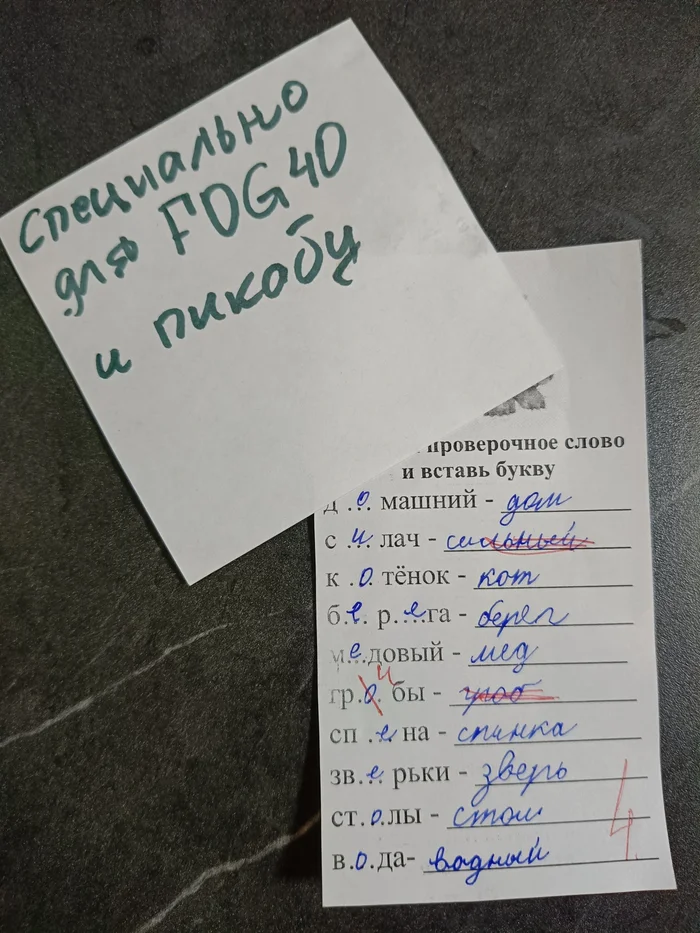 Специально
для FOG40
и пикабу
проверочное слово
и вставь букву
д .о. машний - дом
с .и. лач - сильный
к .о. тёнок - кот
б.е. р.е.га - берег
м.е.довый - мед
гр.о. бы - гроб
и
сп .е. на - спинка
зв.е. рьки - зверь
ст.о.лы - стол
в.о.да- водный
4